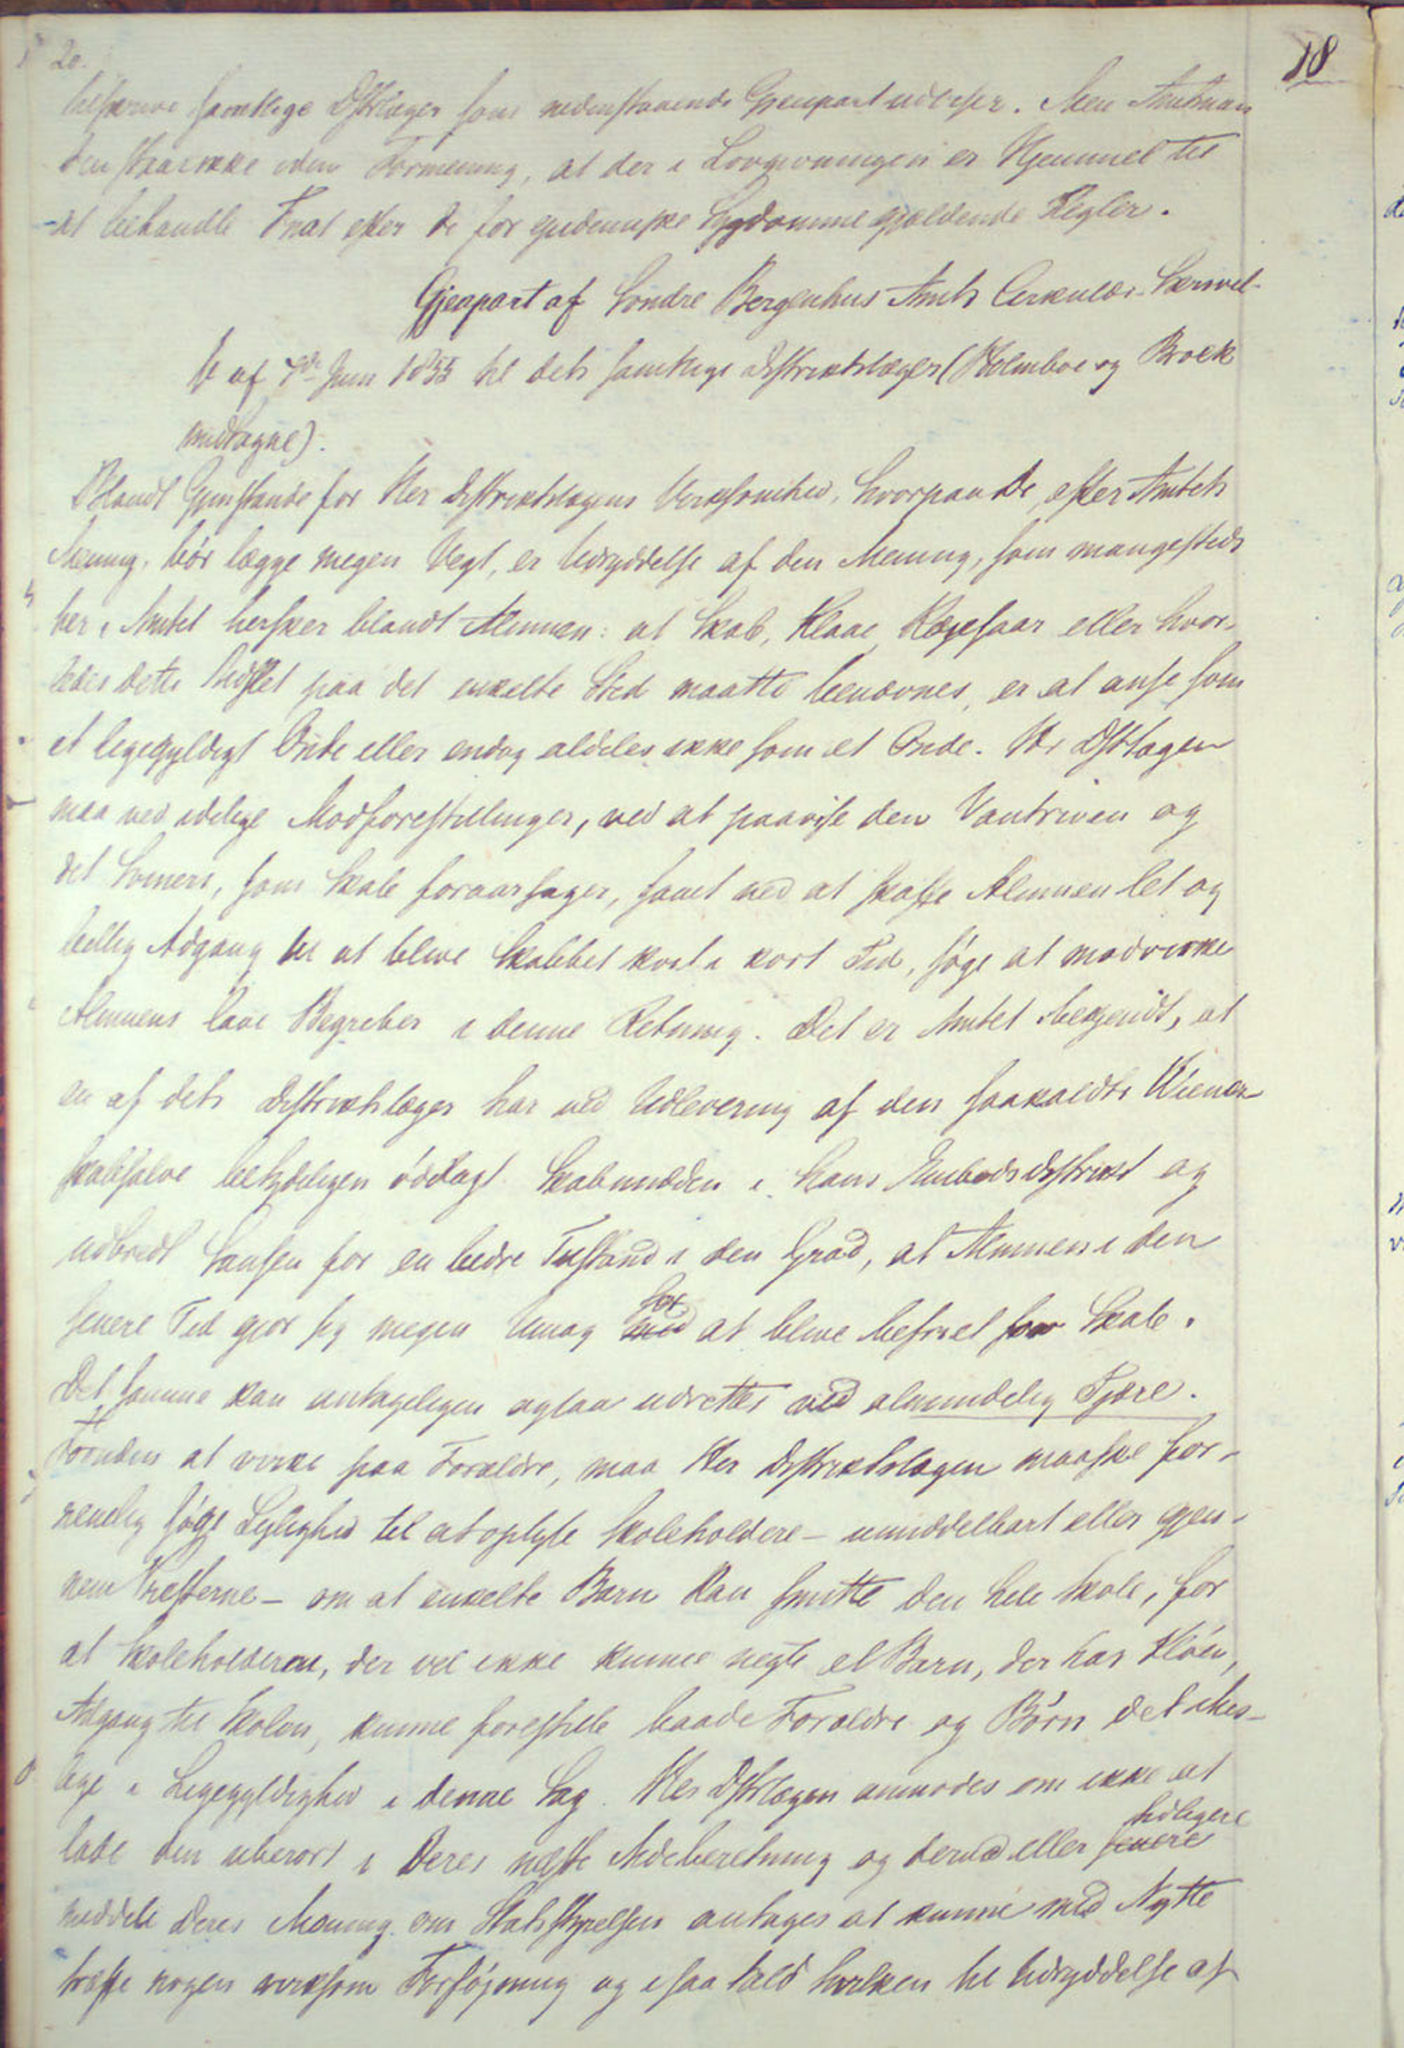 20.
18
tilskrive samtlige Dstrlæger som nedenstaaende Gjenpart udviser. Men Amtman
den skal ikke uden Formening, at der i Lovgivningen er Hjemmel til
at behandle Fnat efter de for epidemiske Sygdomme gjældende Regler.
Gjenpart af Søndre Bergenhus Amts Cirkulær-Skrivel-
se af 7de Juni 1855 til dets samtlige Distriktslæger (Holmboe og Brock
undtagne).
Blandt Gjenstande for Her Distriktslægens Virksomhed, hvorpaa De, efter Amtets
Mening, bør lægge megen Vegt, er Udryddelse af den Mening, som mangesteds
her i Amtet hersker blandt Almuen: at Skab, Klaae, eller hvor-
ledes dette Udslet paa det enkelte Sted maatte benævnes, er at anse som
et ligegyldigt Onde eller endog aldeles ikke som et Onde. Hr Dstrlægen
maa ved idelige Modforestillinger, ved at paavise den Vantriven og
det Svineri, som Skab foraarsager, samt ved at skaffe Almuen let og
billig Adgang til at blive Skabbet kvit i kort Tid, søge at modvirke
Almuens lave Begreber i denne Retning. Det er Amtet bekjendt, at
en af dets Distriktslæger har ved Udlevering af den saakaldte Wiener-
skabsalve betydeligen ødelagt Skabmidden i hans Embedsdistrikt og
udbredt Sansen for en bedre Tilstand i den Grad, at Almuen i den
senere Tid gjør sig megen Umag med for at blive befriet for Skab.
Det samme kan antageligen ogsaa udrettes ved almindelig Tjære.
Foruden at virke paa Forældre, maa Her Distriktslægen maaske for-
nemlig søge Leilighed til at oplyse Skoleholdere – umiddelbart eller gjen-
nem Præsterne – om at enkelte Barn kan smitte den hele Skole, for
at Skoleholderen, der vel ikke kunne negte et Barn, der har Kløen,
Adgang til Skolen, kunne forestille baade Forældre og Børn det
lige i Ligegyldighed i denne Sag. Her Dstrlægen anmodes om ikke at
lade den uberørt i Deres næste Medberetning og derved eller senere tidligere
meddele Deres Mening om Statsstyrelsen antages at kunne med Nytte
træffe nogen virksom Forføjning og i saa Fald hvilken til Udryddelse af